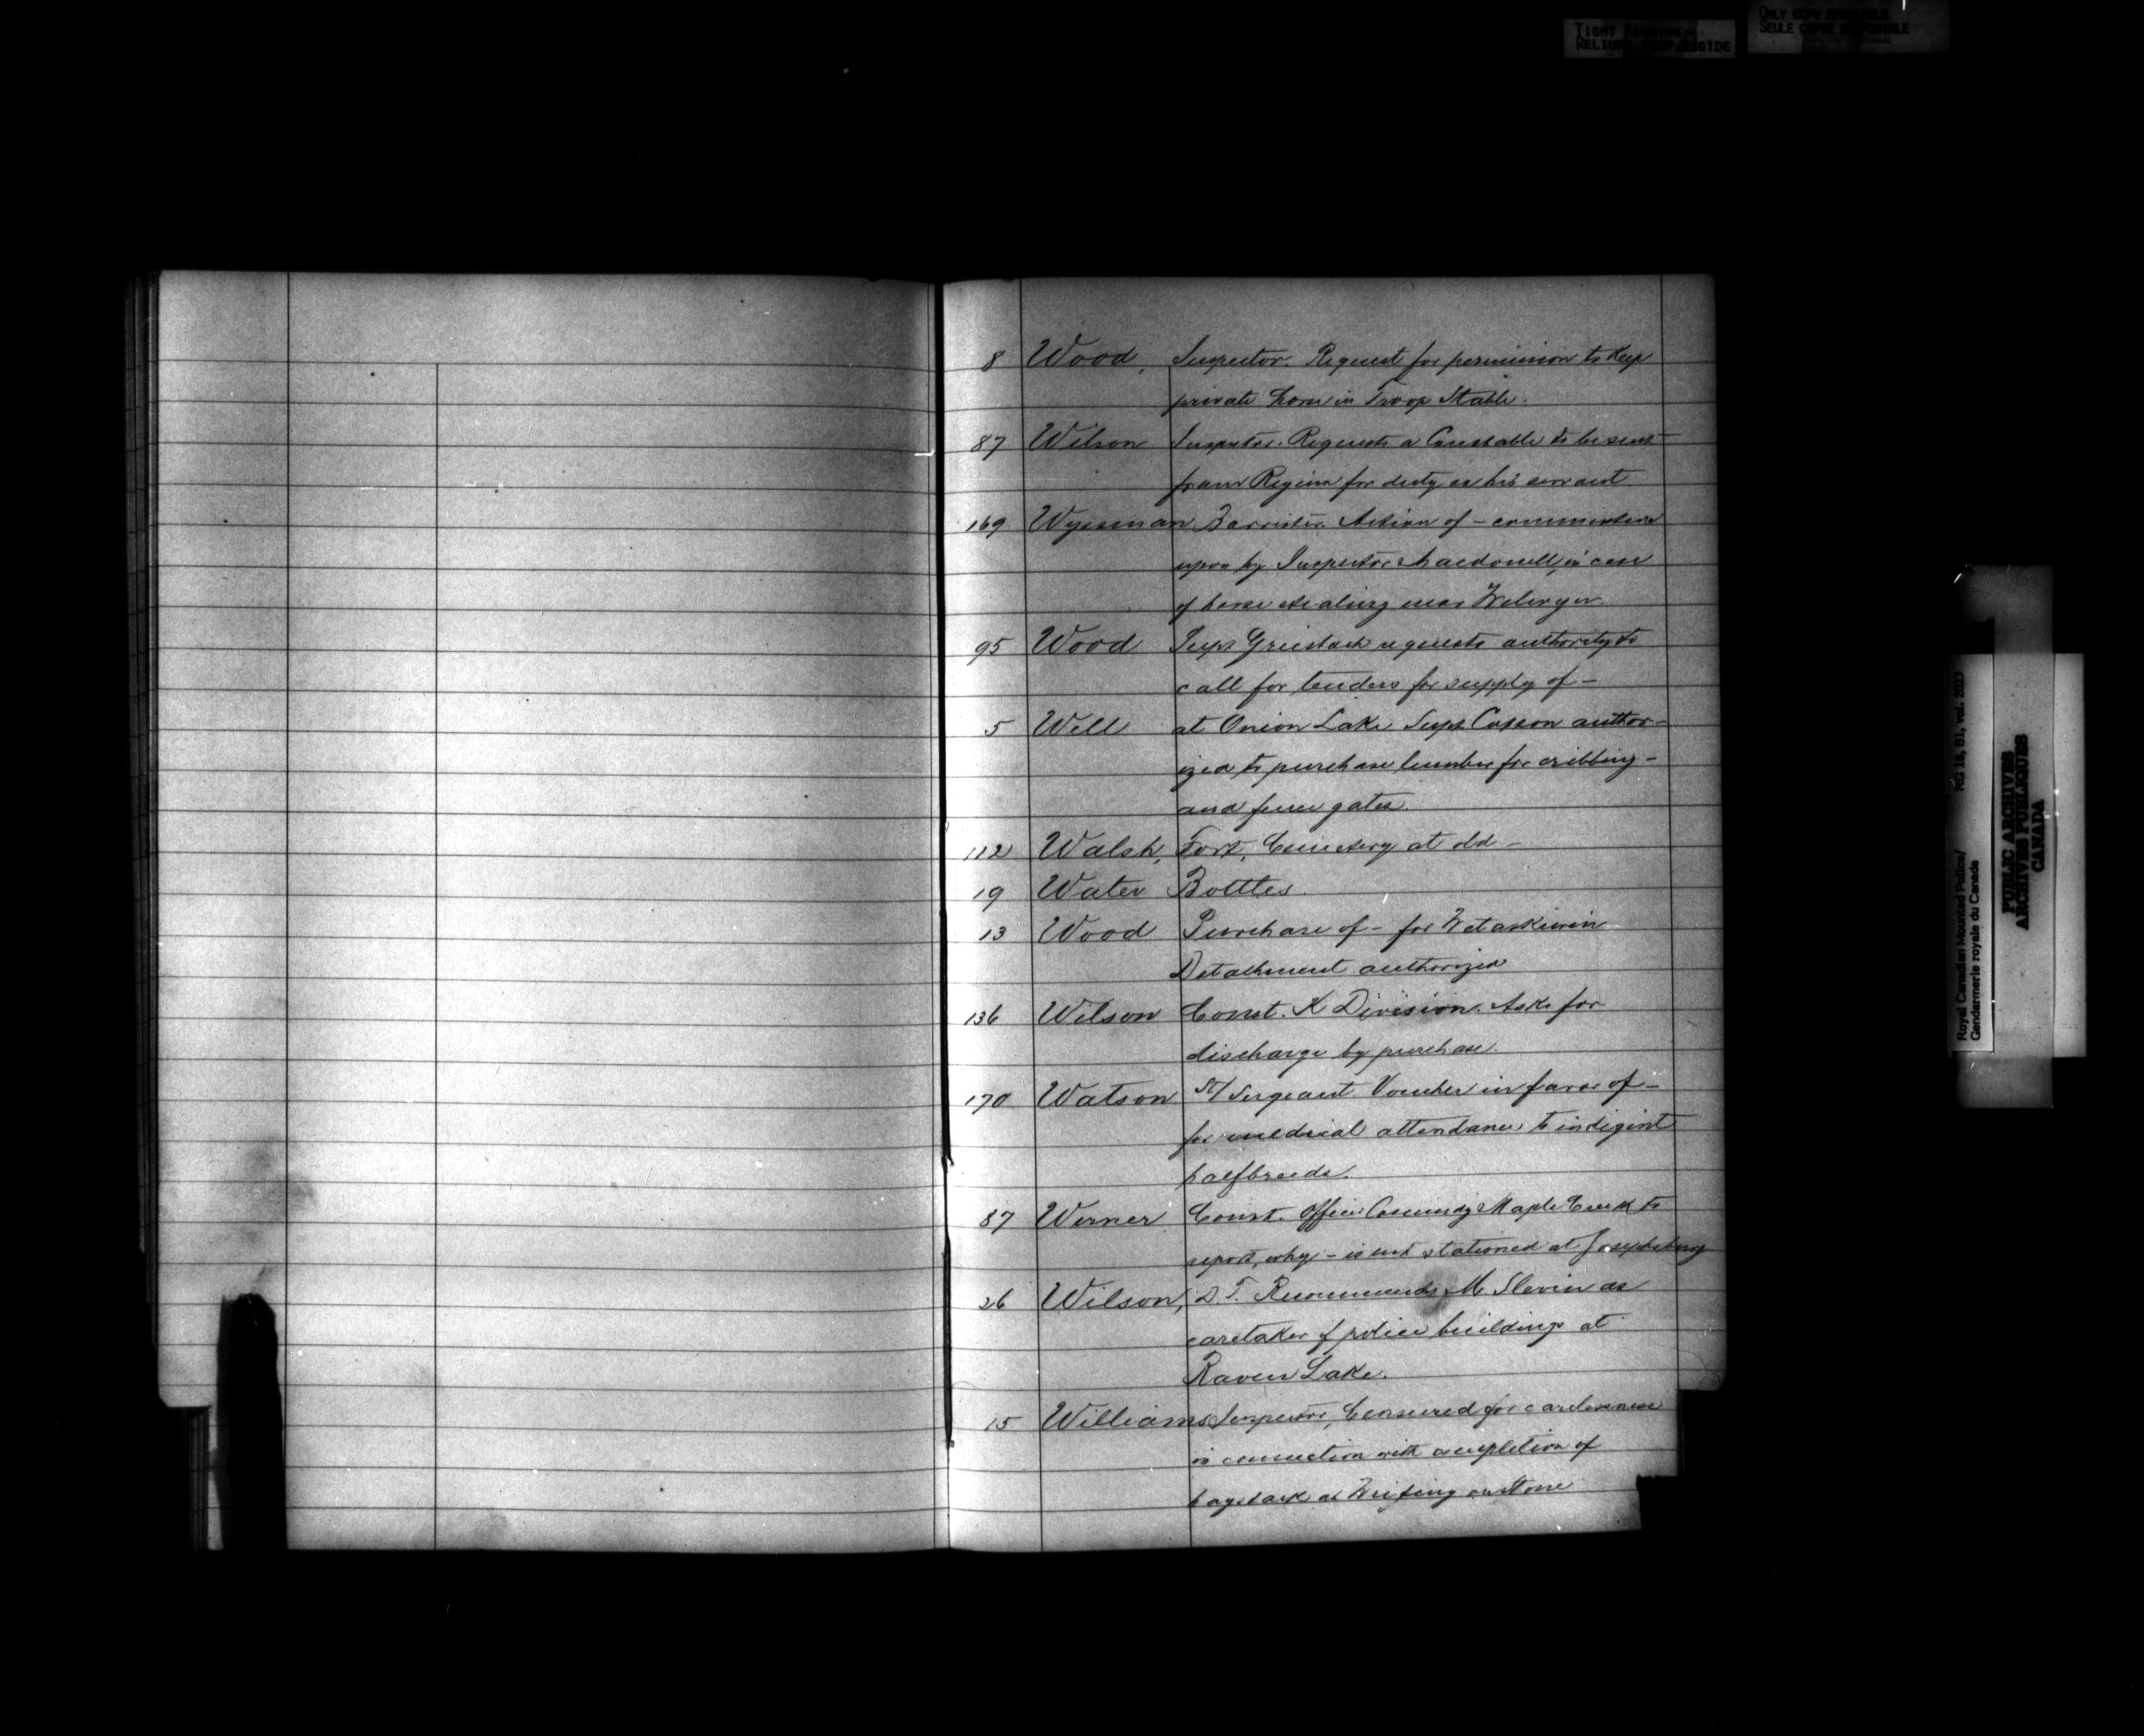 TIGHT BINDING
RELIURE TROP RIGIDE
ONLY COPY AVAILABLE
SEULE COPIE DISPONIBLE
8 Wood, Inspector. Request for permission to keep
private horse in Troop Stable.
87 Wilson Inspector. Requests a Constable to be sent
from Regina for duty as his servant
169 Wyssman Barrister. Action of - commented
upon by Inspector Macdonell, in case
of horse stealing near
95 Wood Supt Griesbach requests authority to
call for tenders for supply of -
5 Well at Onion Lake. Supt Cuppon author-
ized to purchase lumber for cribbing -
and fence gates.
112 Walsh, Fort, Cemetery at old -
19 Water Bottles.
13 Wood Purchase of - for Wetaskiwin
Detachment authorized
136 Wilson Const. K Division. Asks for
discharge by purchase.
170 Watson St/ Sergeant. Voucher in favor of -
for medical attendance to indigent
halfbreeds.
87 Werner Const. Officer Commdg Maple Creek to
report, why - is not stationed at Josephsburg
26 Wilson, D.T. Recommends M. Slevin as
caretaker of police buildings at
Raven Lake.
15 Williams Inspector, Censured for carelessness
in connection with completion of
haystack at Writing on Stone
Royal Canadian Mounted Police/
Gendarmerie royale du Canada
RG 18, B1, vol. 2023
PUBLIC ARCHIVES
ARCHIVES PUBLIQUES
CANADA